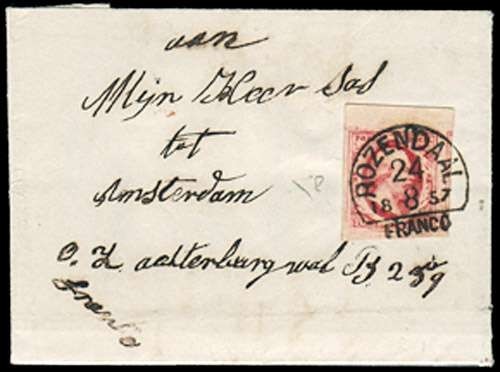 aan
Mijn Heer Sas
tot
Amsterdam
O. Z. achterburg wal
franco
ROZENDAAL
24
18 8 57
FRANCO